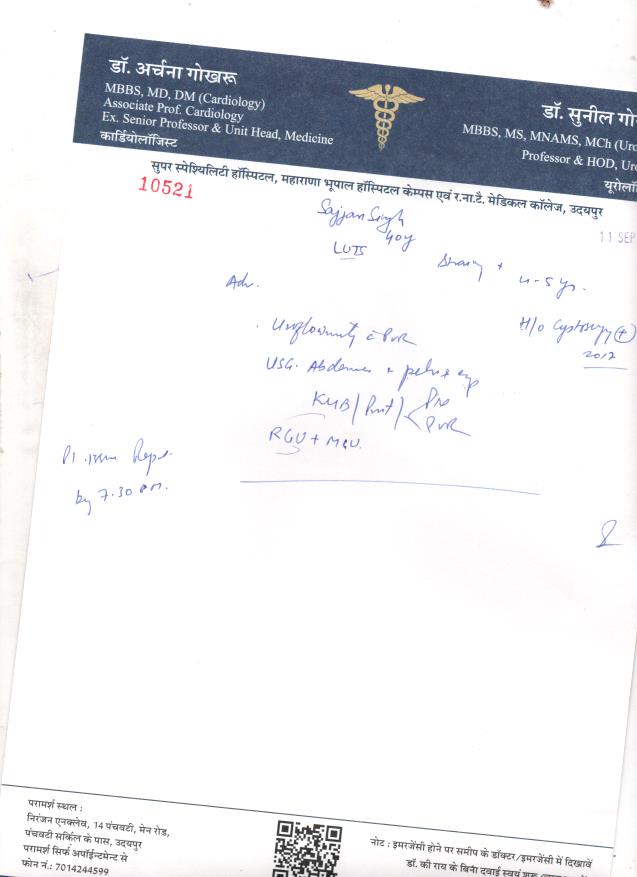 डॉ. अर्चना गोखरू
MBBS, MD, DM (Cardiology)
Associate Prof. Cardiology
Ex. Senior Professor & Unit Head, Medicine
कार्डियोलॉजिस्ट
डॉ. सुनील गो
MBBS, MS, MNAMS, MCh (Uro
Professor & HOD, Ur
यूरोलॉ
सुपर स्पेश्यिलिटी हॉस्पिटल, महाराणा भूपाल हॉस्पिटल केम्पस एवं र.ना.टै. मेडिकल कॉलेज, उदयपुर
10521
Sajjan Singh
40y
11 SEP
LUTS
4-5 yr.
Adv.
H/o Cystoscopy (+)
2017
Uroflowmetry c PVR
USG. Abdomen + pelvis
KUB / Prost / Pre
PVR
RGU + MCU.
by 7.30 PM.
परामर्श स्थल :
निरंजन एनक्लेव, 14 पंचवटी, मेन रोड,
पंचवटी सर्किल के पास, उदयपुर
परामर्श सिर्फ अपॉईन्टमेन्ट से
फोन नं.: 7014244599
नोट : इमरजेंसी होने पर समीप के डॉक्टर/इमरजेंसी में दिखावें
डॉ. की राय के बिना दवाई स्वयं शुरू